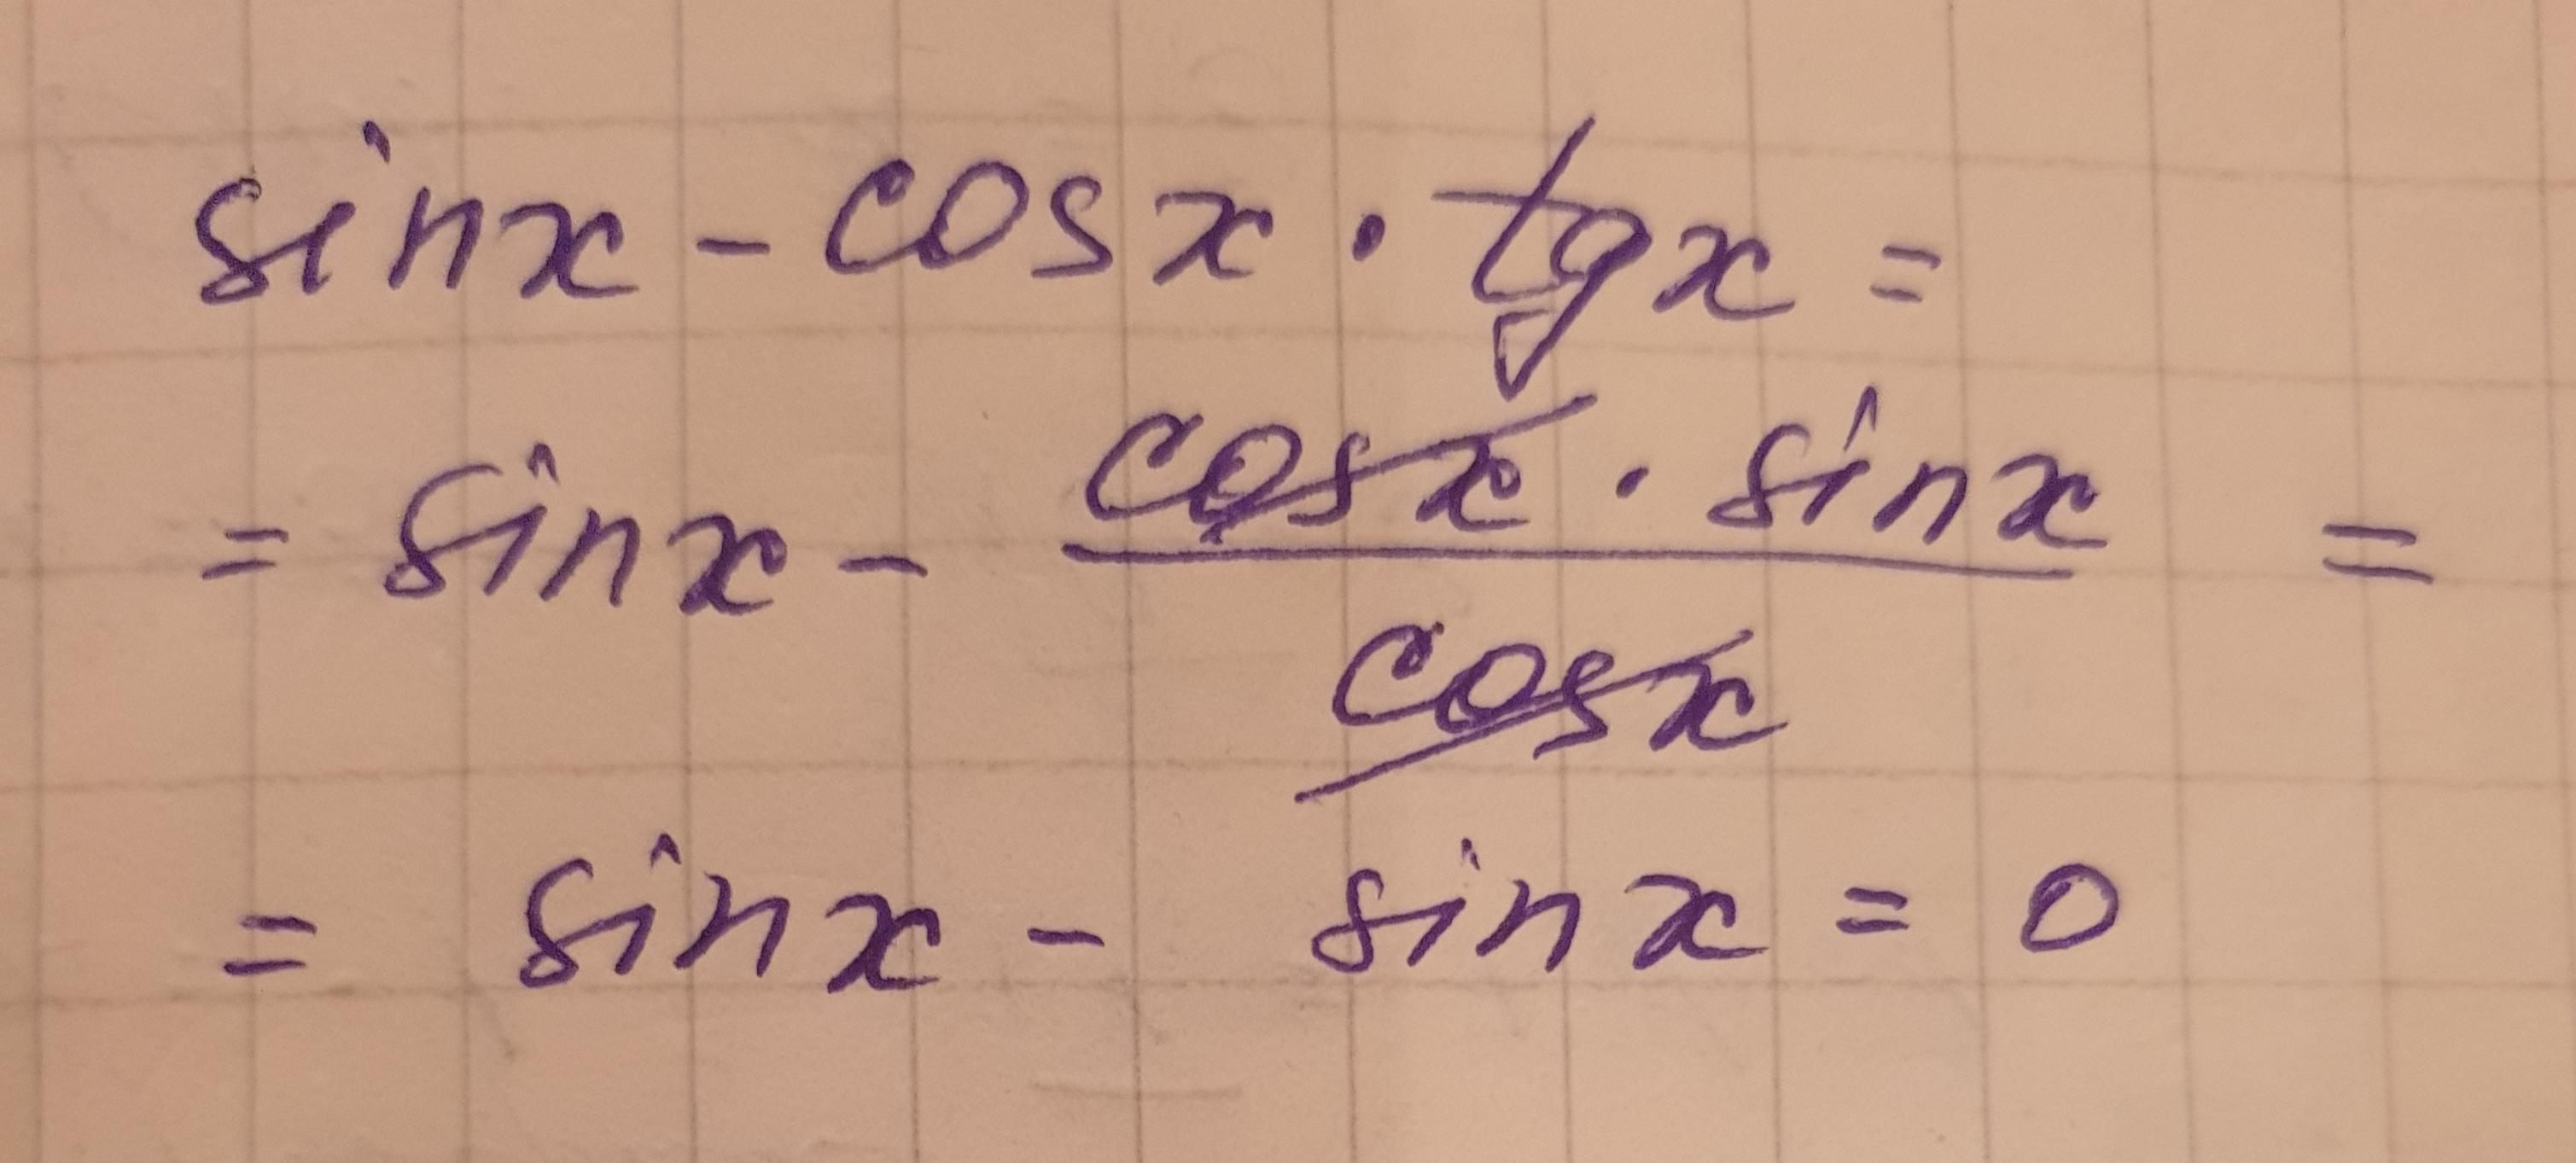 sinx - cosx · tgx =
= sinx - (cosx · sinx)/cosx =
= sinx - sinx = 0